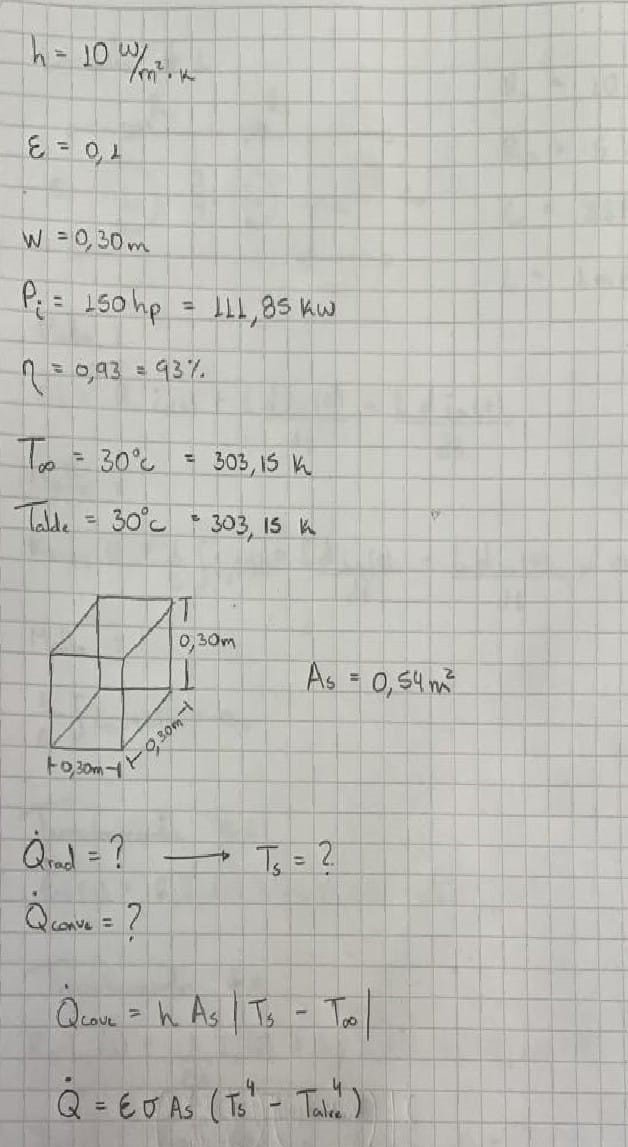 h = 10 W/m².K
ε = 0,1
W = 0,30m
Pi = 150hp = 111,85 KW
η = 0,93 = 93%.
T∞ = 30°C = 303,15 K
Talde = 30°C = 303,15 K
0,30m
As = 0,54m²
0,30m
0,30m
Q̇rad = ? → Ts = ?
Q̇conve = ?
Q̇couc = h As |Ts - T∞|
Q̇ = εσ As (Ts⁴ - Talre⁴)